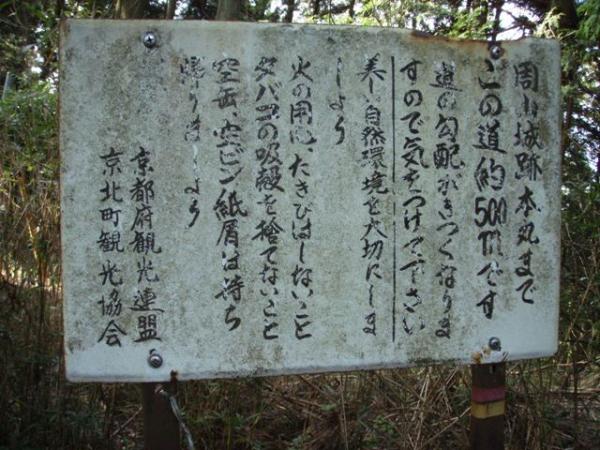 周山城跡本丸まで
この道約500mです
道の勾配がきつくなりま
すので気をつけて下さい
美しい自然環境を大切にしま
しょう
火の用心、たきびはしないこと
タバコの吸殻を捨てないこと
空缶、空ビン紙屑は持ち
帰りましょう
京都府観光連盟
京北町観光協会